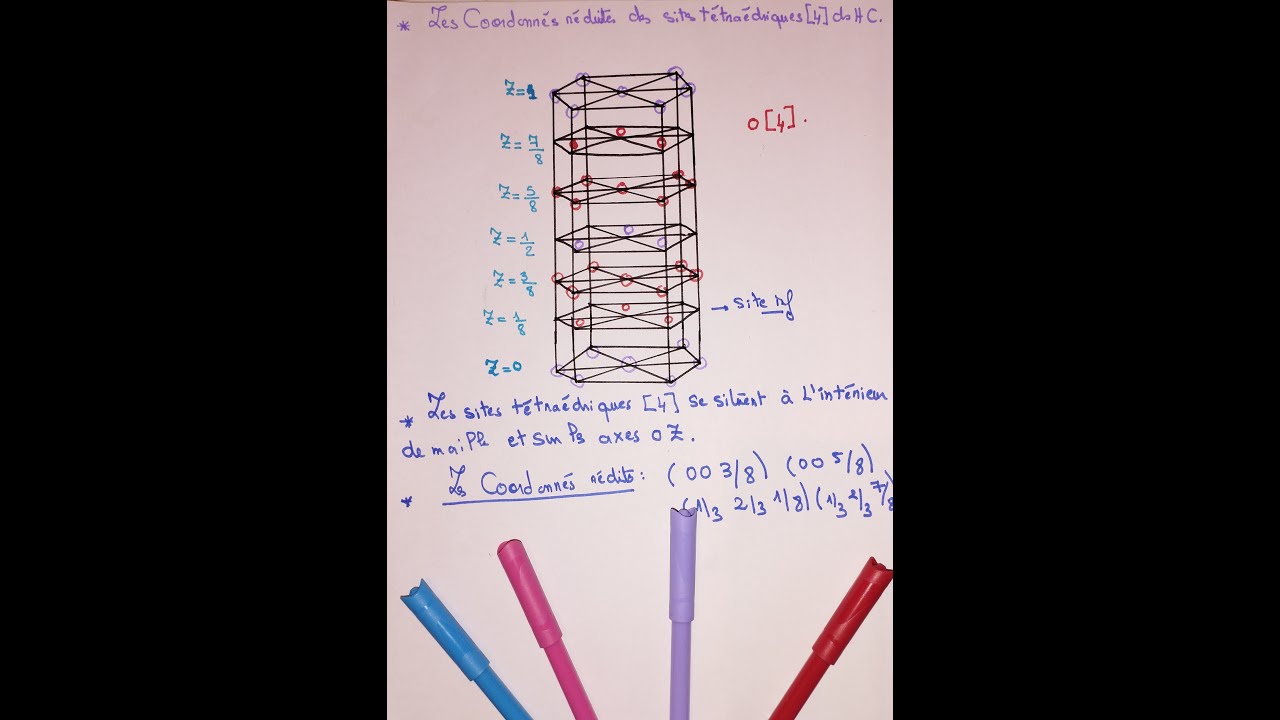 * Les Coordonnés réduites des sites tétraédriques [4] de HC.
Z=1
o [4].
Z=7/8
Z=5/8
Z=1/2
Z=3/8
→ site
Z=1/8
Z=0
* Les sites tétraédriques [4] se situent à L'intérieur
de maille et sur les axes OZ.
* Les Coordonnés réduits : (00 3/8) (00 5/8)
(1/3 2/3 1/8) (1/3 2/3 7/8